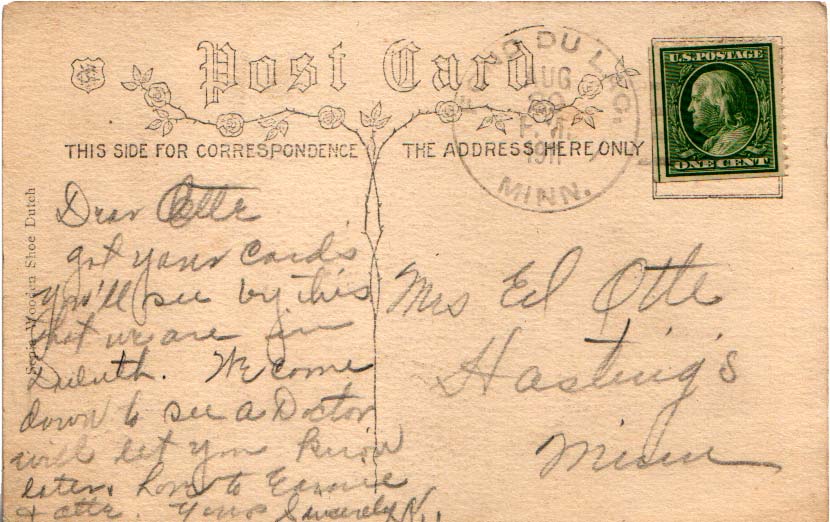 Post Card
FOND DU LAC.
AUG
30
P.M.
1911
MINN.
U.S. POSTAGE
ONE CENT
THIS SIDE FOR CORRESPONDENCE
THE ADDRESS HERE ONLY
Series Wooden Shoe Dutch
Dear Otte
got your cards
you'll see by this
that we are in
Duluth. We come
down to see a Doctor
will let you know
later. love to
& Otte. Yours Sincerely N.
Mrs Ed Otte
Hasting's
Minn